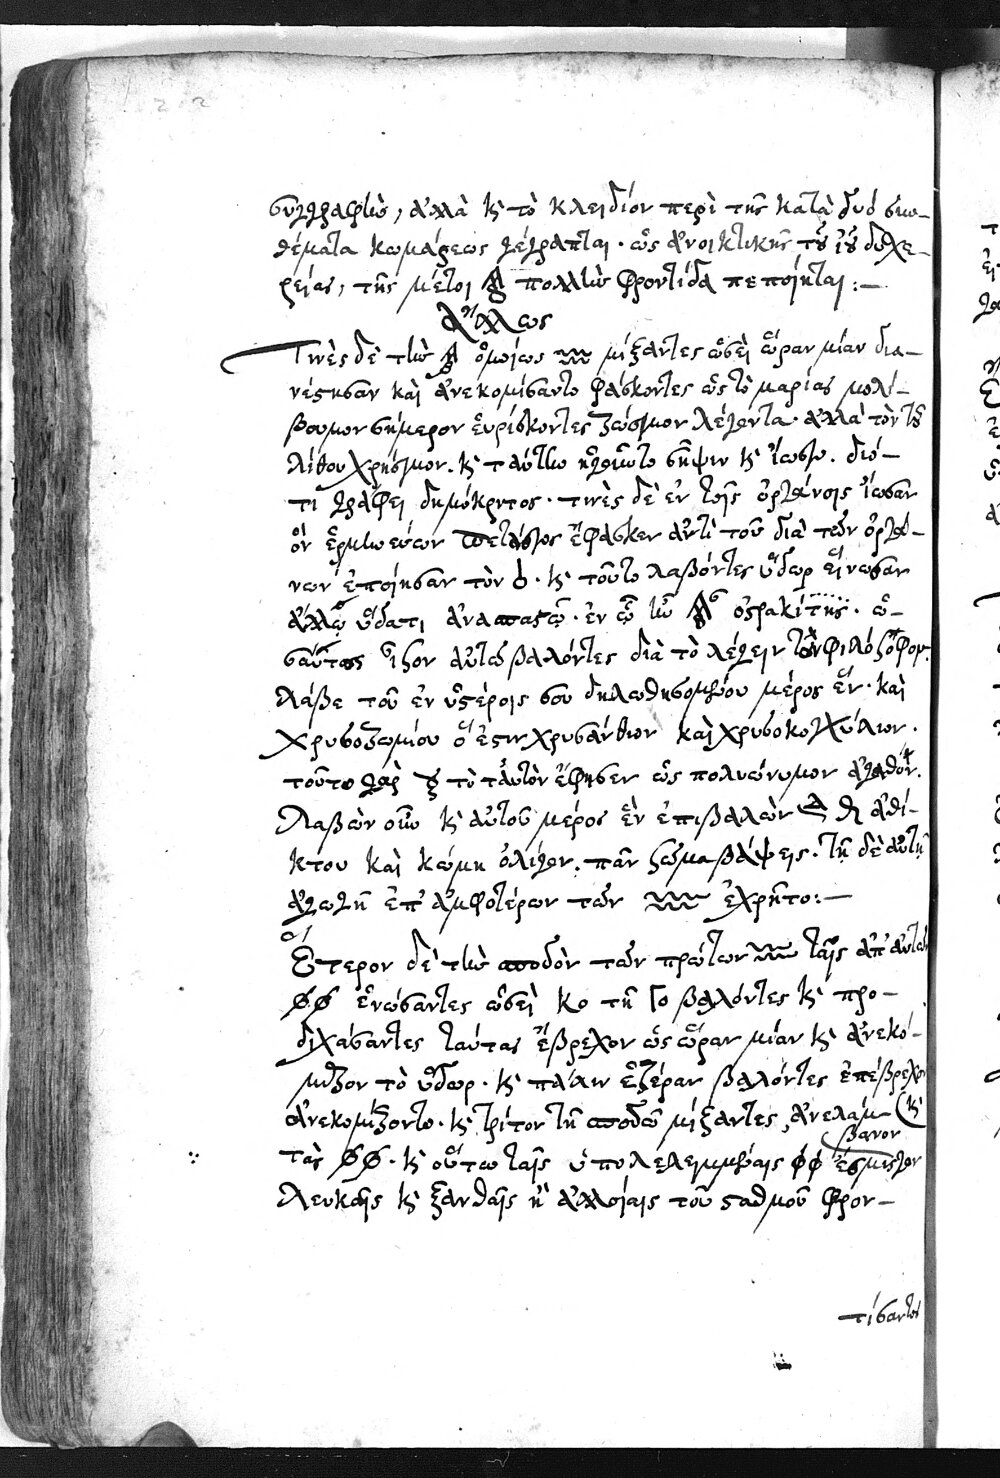 συγγραφὴν, ἀλλὰ κ τὸ κλειδίον περὶ τῆς κατὰ δύο συν-
θέματα κωμάσεως γέγραπται. ὡς ἀνοικτικῆς τοῦ ἰοῦ δυχε-
ρείας, τῆς μέτοι πολλὴν φροντίδα πεποίηται :—
Ἄλλως
Τινὲς δὲ τὴν ὁμοίως μίξαντες ὡσεὶ ὥραν μίαν δια-
καὶ ἀνεκομίσαντο φάσκοντες ὡς τὸ μαρίας μολί-
σήμερον εὑρίσκοντες ζώσιμον λέγοντα. ἀλλὰ τὸν τοῦ
λίθου χρήσιμον. κ ταύτην σῆψιν κ ἴωσιν. διό-
τι γράφει δημόκριτος. τινὲς δὲ ἐν τοῖς ὀργάνοις ἴωσαν
ὃν ἑρμηνεύων ἔφασκεν ἀντὶ τοῦ διὰ τῶν ὀργά-
νων ἐποίησαν τὸν. κ τοῦτο λαβόντες ὕδωρ εἴνωσαν
ἄλλῳ ὕδατι. ἐν ᾧ ἦν ὀστρακίτης. ὡ-
σαύτως βαλόντες διὰ τὸ λέγειν τὸν φιλόσοφον.
λάβε τοῦ ἐν ὑστέροις σου δηλωθησομένου μέρος ἕν. καὶ
χρυσοζωμίου ὅ ἐστιν χρυσάνθιον καὶ χρυσοκογχύλιον.
τοῦτο γὰρ τὸ ταὐτὸν ἔφησεν ὡς πολυώνυμον ἀγαθόν.
Λαβὼν οὖν κ αὐτοῦ μέρος ἓν ἐπιβαλὼν ἀθί-
κτου καὶ κώμη ὀλίγον. πᾶν σῶμα βάψεις. τῇ δὲ αὐτῇ
ἀγωγῇ ἐπ ἀμφοτέρων τῶν ἐχρῆντο :—
Ἕτερον δὲ τὴν σποδὸν τῶν πρώτων ταῖς ἀπ αὐτῶν
ἑνώσαντες ὡσεὶ βαλόντες κ προ-
διχάσαντες ταύτας ἔβρεχον ὡς ὥραν μίαν κ ἀνεκό-
μιζον τὸ ὕδωρ. κ πάλιν ἑτέραν βαλόντες ἐπέβρεχον
ἀνεκομίζοντο. κ τρίτον τῇ σποδῷ μίξαντες, ἀνελάμ- κ
βανον
τὰς. κ οὕτω ταῖς ὑπολελειμμέναις ἔσμιγον
λευκαῖς κ ξανθαῖς ἢ ἀλλοίαις τοῦ σταθμοῦ φρον-
τίσαντες